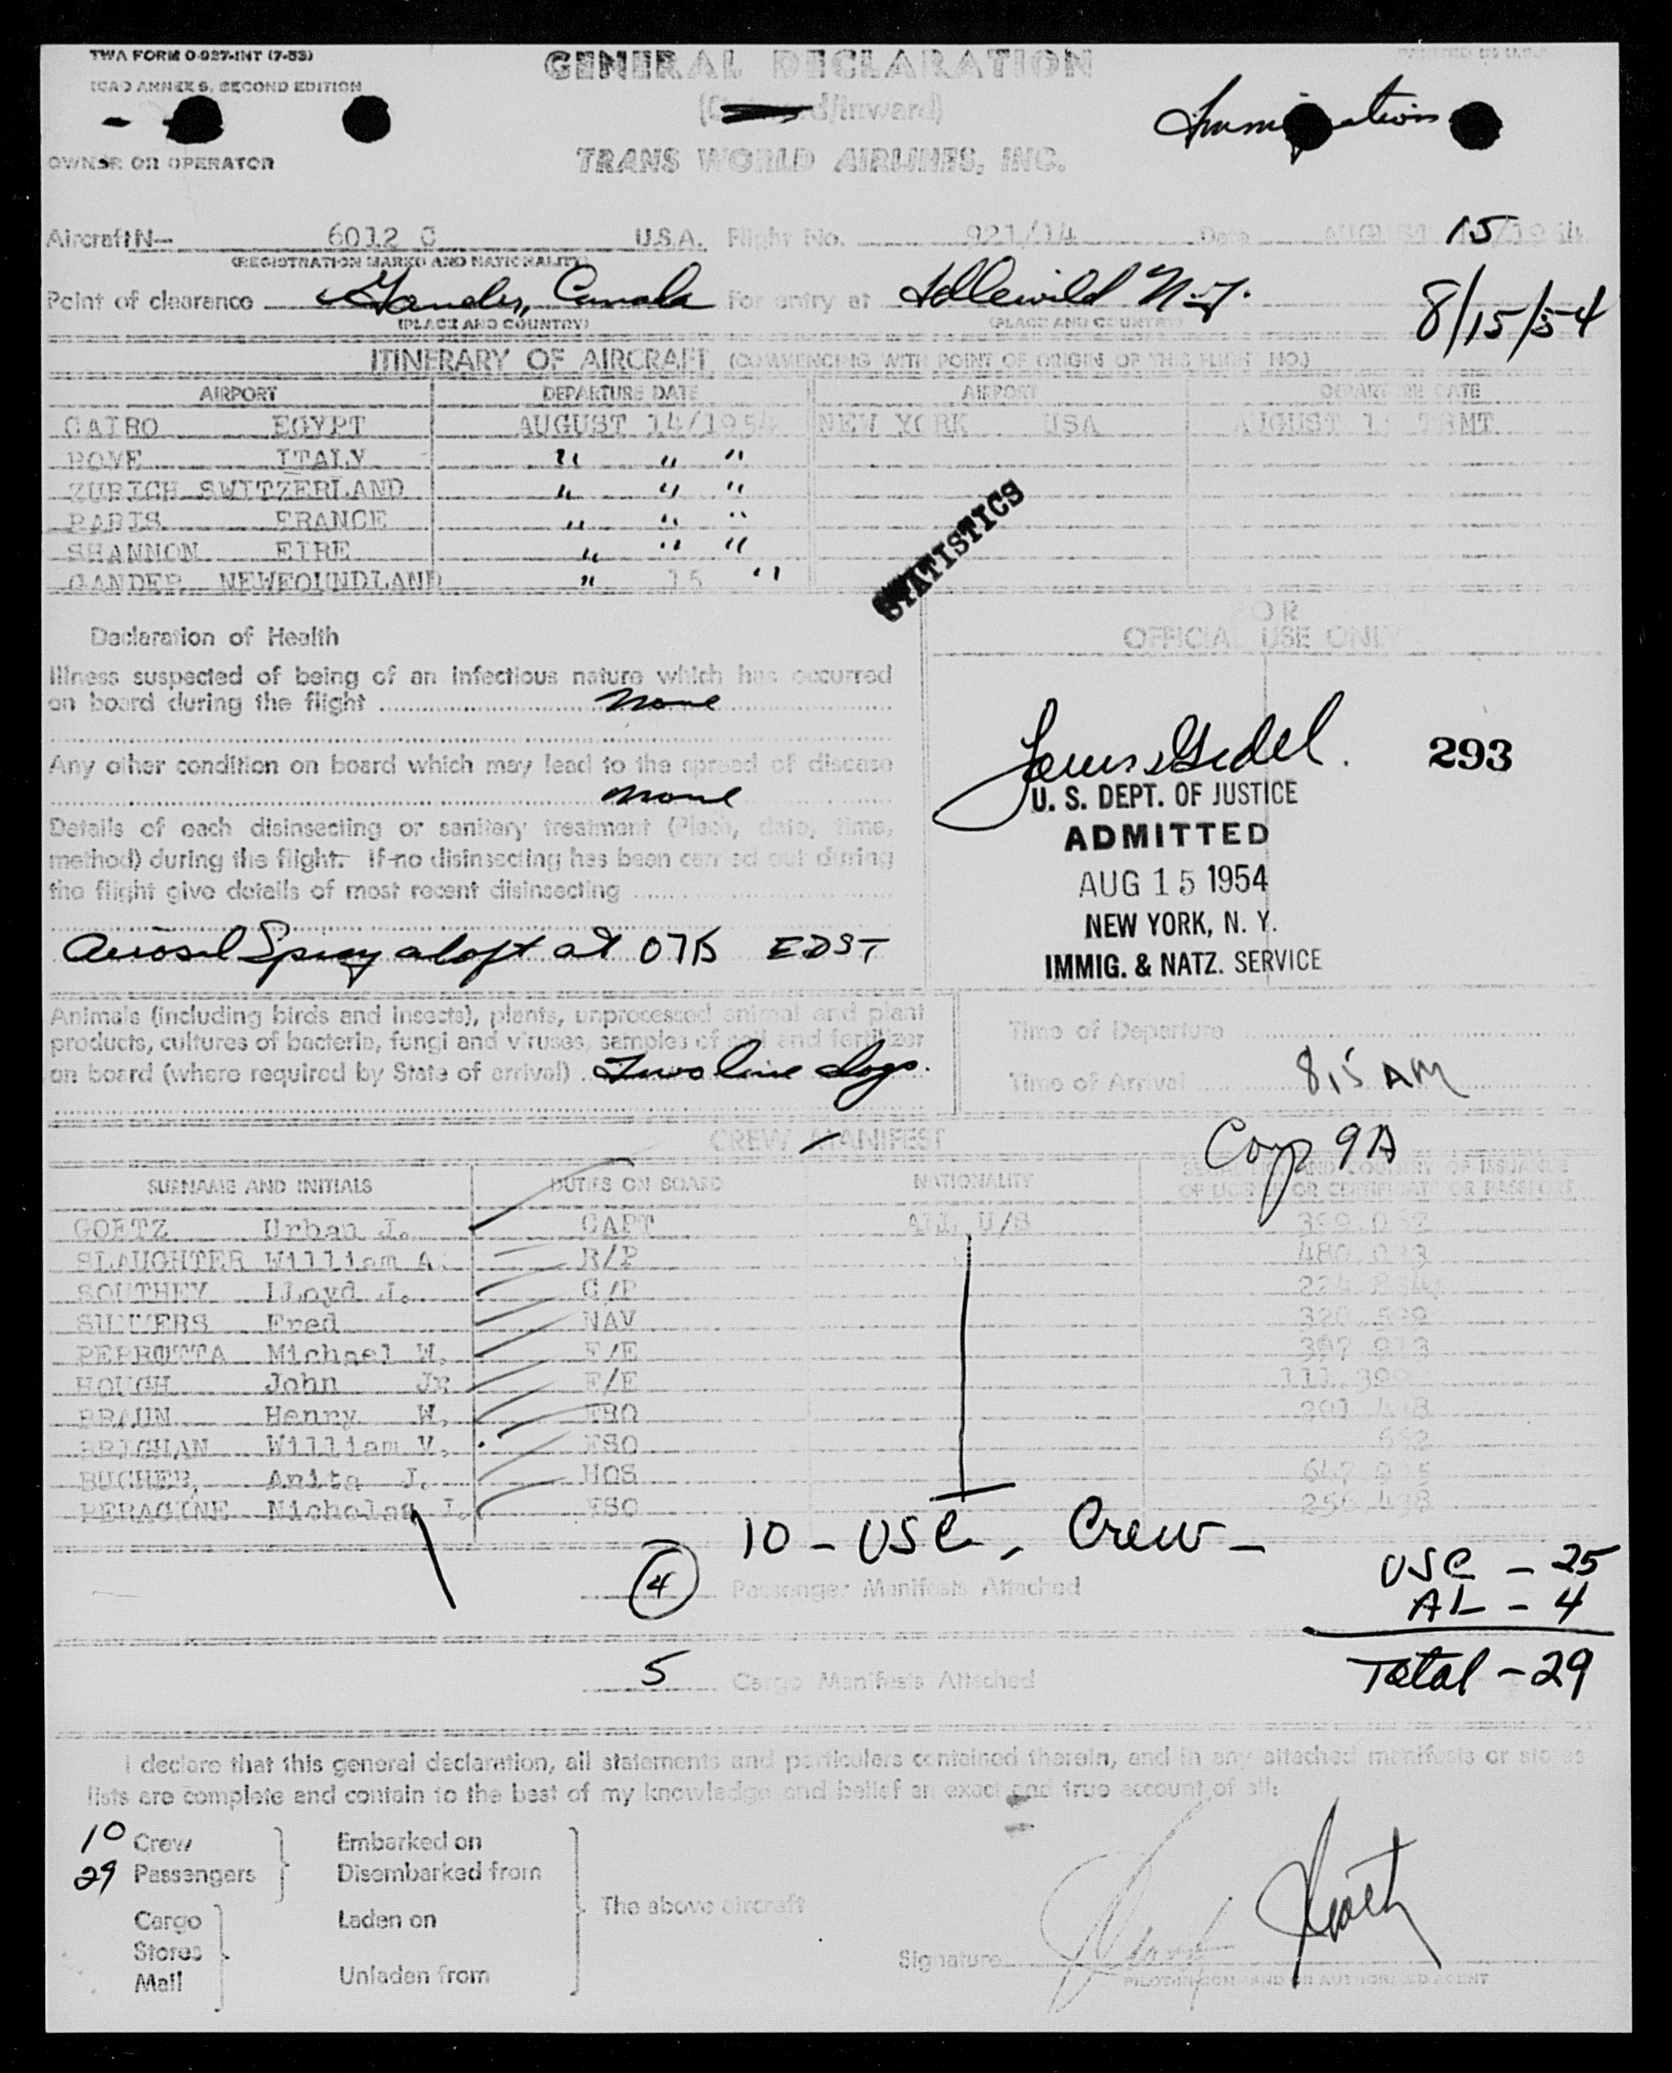 TWA FORM O-927-INT (7-53)
ICAO ANNEX 9, SECOND EDITION
GENERAL DECLARATION
(Outward/Inward)
Immigration
OWNER OR OPERATOR
TRANS WORLD AIRLINES, INC.
Aircraft N- 6012 C U.S.A. Flight No. 921/14 Date AUGUST 15/1954
(REGISTRATION MARKS AND NATIONALITY)
Point of clearance Gander, Canada For entry at Idlewild N.Y. 8/15/54
(PLACE AND COUNTRY) (PLACE AND COUNTRY)
ITINERARY OF AIRCRAFT (COMMENCING WITH POINT OF ORIGIN OF THIS FLIGHT NO.)
AIRPORT DEPARTURE DATE AIRPORT DEPARTURE DATE
CAIRO EGYPT AUGUST 14/1954 NEW YORK USA AUGUST
ROME ITALY " " "
ZURICH SWITZERLAND " " "
PARIS FRANCE " " "
SHANNON EIRE " " "
GANDER NEWFOUNDLAND " 15 "
STATISTICS
FOR
OFFICIAL USE ONLY
Declaration of Health
Illness suspected of being of an infectious nature which has occurred
on board during the flight None
Any other condition on board which may lead to the spread of disease
None
Details of each disinsecting or sanitary treatment (Place, date, time,
method) during the flight. If no disinsecting has been carried out during
the flight give details of most recent disinsecting
Aerosol Spray aloft at 0715 EDST
293
U. S. DEPT. OF JUSTICE
ADMITTED
AUG 15 1954
NEW YORK, N. Y.
IMMIG. & NATZ. SERVICE
Animals (including birds and insects), plants, unprocessed animal and plant
products, cultures of bacteria, fungi and viruses, samples of soil and fertilizer
on board (where required by State of arrival) Two live dogs.
Time of Departure
Time of Arrival 815 AM
CREW MANIFEST
Comp 9A
SURNAME AND INITIALS DUTIES ON BOARD NATIONALITY SERIAL NO. AND COUNTRY OF ISSUANCE
OF LICENSE OR CERTIFICATE OR PASSPORT
GOETZ Urban J. CAPT ALL U/S
SLAUGHTER William A. R/P
SOUTHEY LLoyd J. C/P
SUMMERS Fred NAV
PERROTTA Michael W. F/E
HOUGH John Jr F/E
BRAUN Henry W. FRO
William V. FSO
BUCHER, Anita J. HOS
PERAGINE Nicholas J. FSO
10 - USC, Crew -
4 Passenger Manifests Attached
USC - 25
AL - 4
Total - 29
5 Cargo Manifests Attached
I declare that this general declaration, all statements and particulars contained therein, and in any attached manifests or stores
lists are complete and contain to the best of my knowledge and belief an exact and true account of all:
10 Crew
29 Passengers
Embarked on
Disembarked from
Cargo
Stores
Mail
Laden on
Unladen from
The above aircraft
Signature
PILOT-IN-COMMAND OR AUTHORIZED AGENT